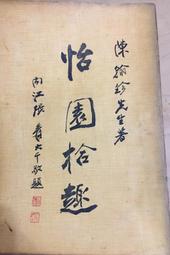 陳翰珍先生著
怡園拾趣
内江張爰大千敬題